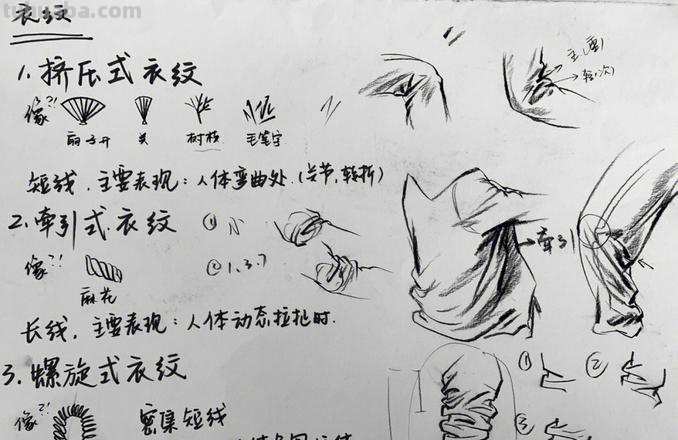 衣纹
tuhuaba.com
1. 挤压式衣纹
像?!
扇子开 关 树杈 毛笔字
主(重)
轻(次)
短线,主要表现:人体弯曲处.(关节,转折)
2. 牵引式衣纹 ①
像?! ②1.3.7
麻花
牵引
长线,主要表现:人体动态拉扯时.
3. 螺旋式衣纹
① ②
像?! 密集短线
③